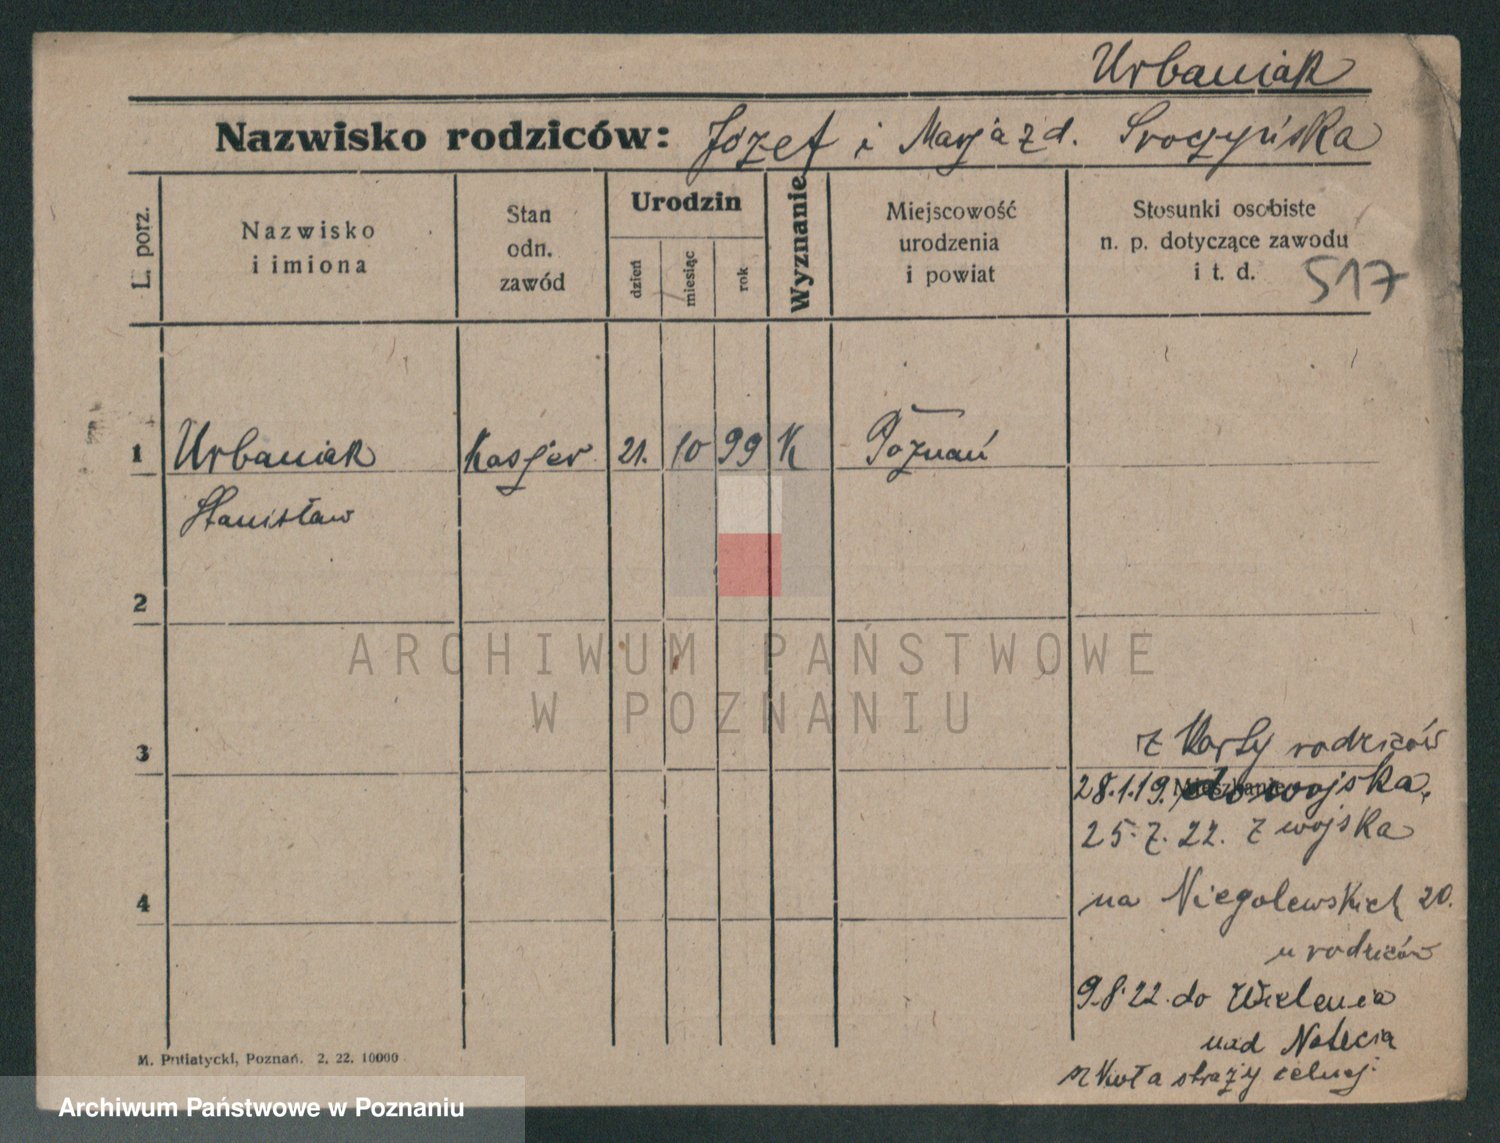 Urbaniak
Nazwisko rodziców: Józef i Marja z d. Sroczyńska
L. porz.
Nazwisko
i imiona
Stan
odn.
zawód
Urodzin
dzień
miesiąc
rok
Wyznanie
Miejscowość
urodzenia
i powiat
Stosunki osobiste
n. p. dotyczące zawodu
i t. d.
517
1 Urbaniak Kasjer 21. 10 99 K Poznań
Stanisław
2
ARCHIWUM PAŃSTWOWE
W POZNANIU
3
z Karty rodziców
Mieszkanie
28.1.19. do wojska.
25.7.22. z wojska
4
na Niegolewskich 20.
u rodziców
9.8.22. do Wielenia
nad Notecią
straży celnej.
M. Putiatycki, Poznań. 2. 22. 10000
Archiwum Państwowe w Poznaniu